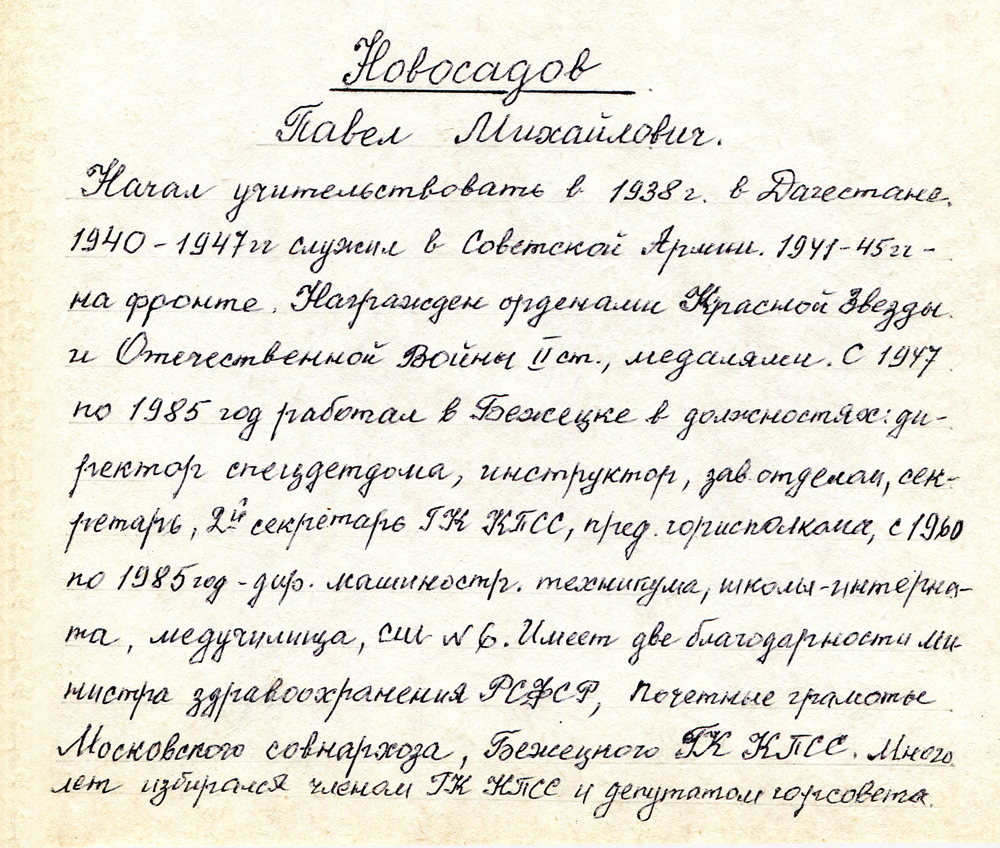 Новосадов
Павел Михайлович.
Начал учительствовать в 1938г. в Дагестане.
1940-1947гг служил в Советской Армии. 1941-45гг -
на фронте. Награжден орденами Красной Звезды
и Отечественной Войны II ст., медалями. С 1947
по 1985 год работал в Бежецке в должностях: ди-
ректор спецдетдома, инструктор, зав.отделом, сек-
ретарь, 2й секретарь ГК КПСС, пред. горисполкома, с 1960
по 1985год - дир. машиностр. техникума, школы-интерна-
та, медучилища, сш №6. Имеет две благодарности ми-
нистра здравоохранения РСФСР, Почетные грамоты
Московского совнархоза, Бежецкого ГК КПСС. Много
лет избирался членом ГК КПСС и депутатом горсовета.